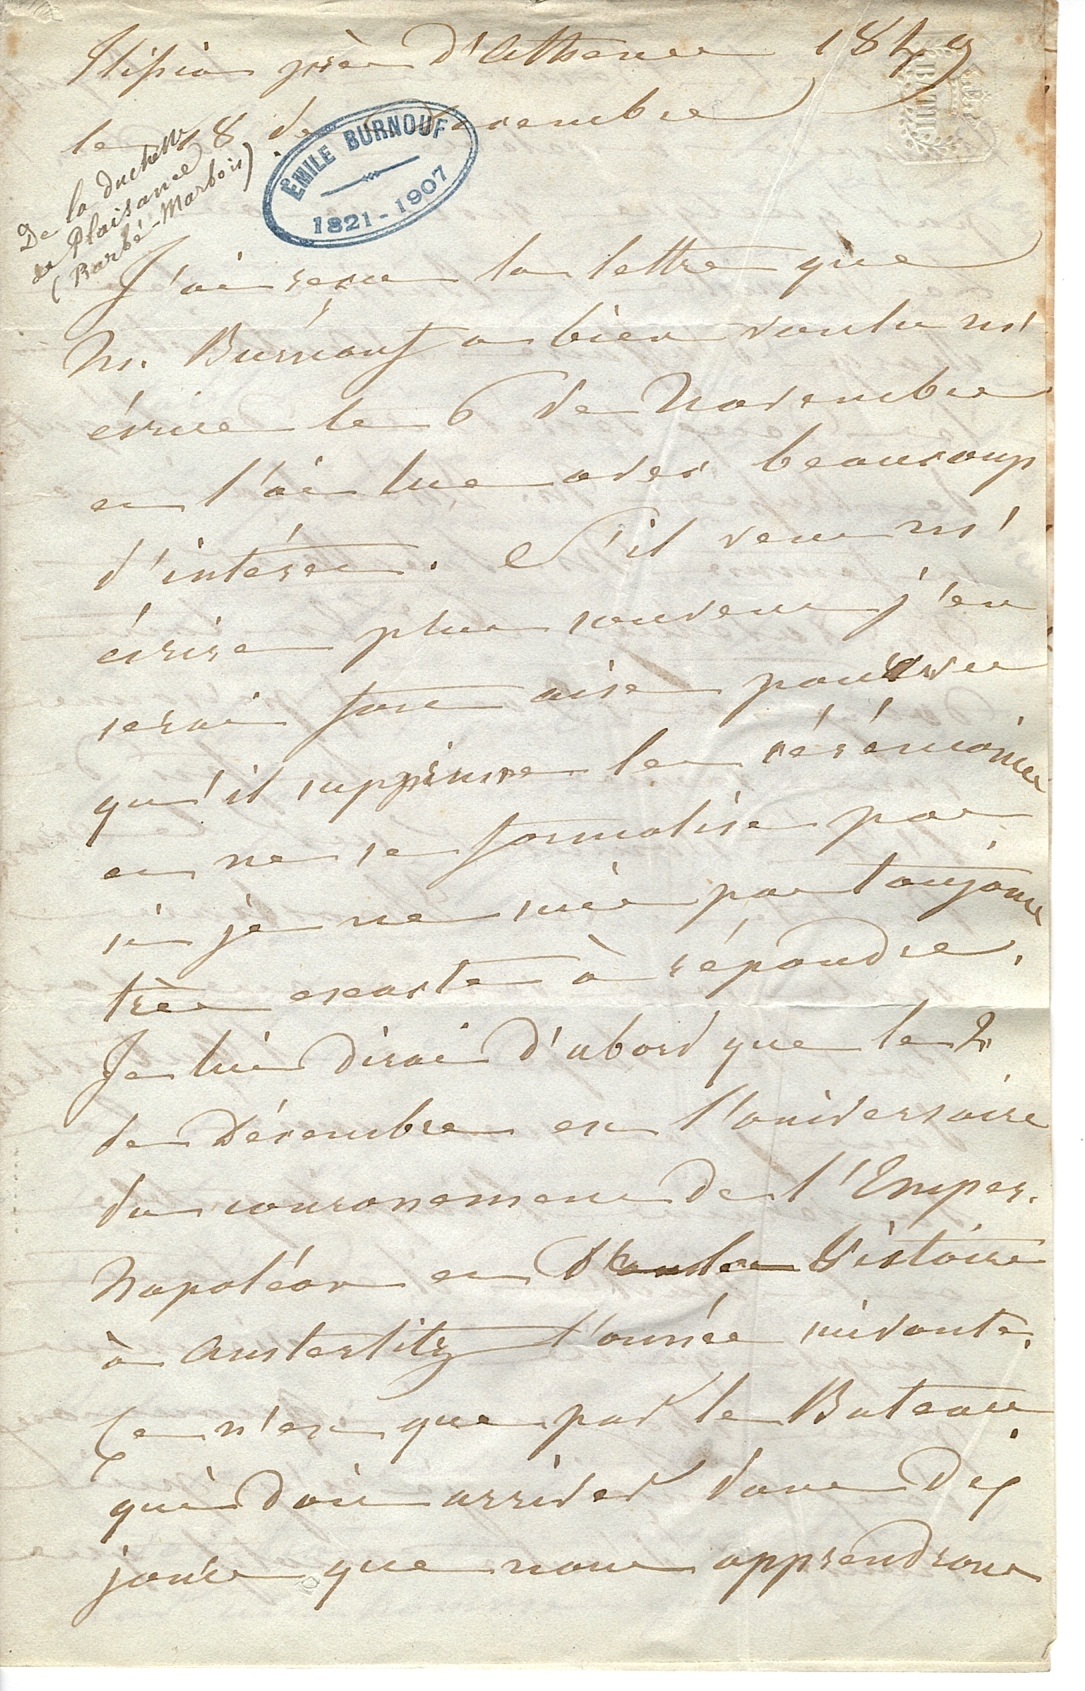 Ilisia près d'Athènes 1849
le 8 de novembre
De la duchesse
de Plaisance
(Barbé-Marbois)
ÉMILE BURNOUF
1821-1907
BATH
J'ai reçu la lettre que
M. Burnouf a bien voulu m'
écrire le 6 de Novembre
et l'ai lue avec beaucoup
d'intérêt. S'il veut m'
écrire plus souvent j'en
serai fort aise pourvu
qu'il supprime les cérémonies
et ne se formalise pas
si je ne suis pas toujours
très exacte à répondre.
Je lui dirai d'abord que le 2
de Décembre est l'aniversaire
du couronement de l'Emper.
Napoléon et de la Victoire
à Austerlitz l'année suivante.
Ce n'est que par le Bateau
qui doit arriver dans dix
jours que nous apprendrons